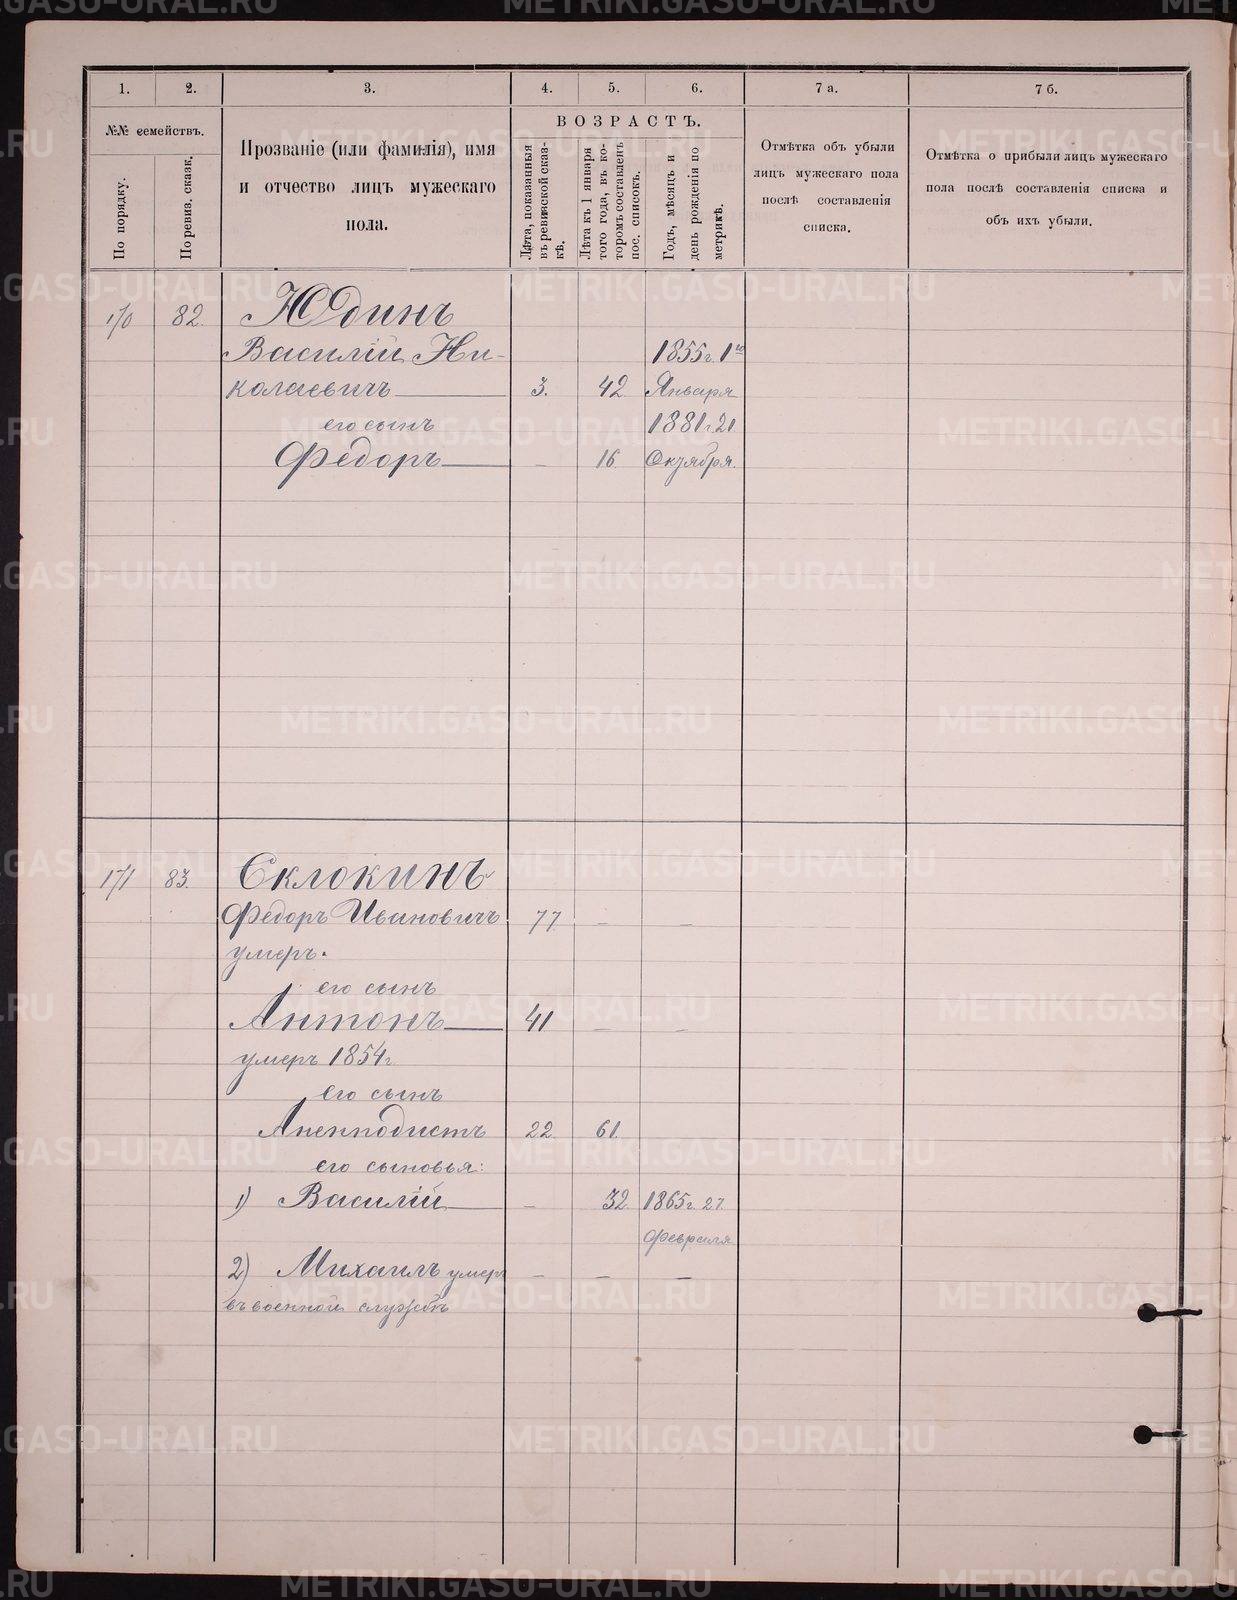 1.
2.
3.
4.
5.
6.
7 а.
7 б.
№№ семействъ.
По порядку.
По ревиз. сказк.
Прозваніе (или фамилія), имя
и отчество лицъ мужескаго
пола.
ВОЗРАСТЪ.
Лѣта, показанныя
въ ревизской сказ-
кѣ.
Лѣта къ 1 января
того года, въ ко-
торомъ составленъ
пос. списокъ.
Годъ, мѣсяцъ и
день рожденія по
метрикѣ.
Отмѣтка объ убыли
лицъ мужескаго пола
послѣ составленія
списка.
Отмѣтка о прибыли лицъ мужескаго
пола послѣ составленія списка и
объ ихъ убыли.
170 82. Юдинъ
Василій Ни- 1855г. 1го
колаевичъ 3. 42 Января
его сынъ 1881г 21
Федоръ — 16. Октября.
171 83. Склокинъ
Федоръ Ивановичъ 77. — —
умеръ.
его сынъ
Антонъ 41 — —
умеръ 1854г
его сынъ
Анемподистъ 22. 61.
его сыновья:
1) Василій — 32. 1865г. 27.
Февраля
2) Михаилъ умеръ — — —
въ военной службѣ
METRIKI.GASO-URAL.RU